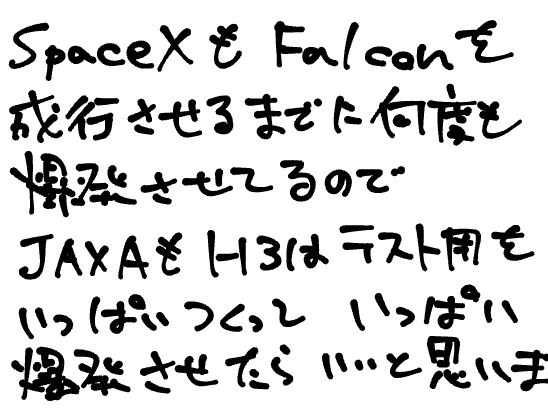 SpaceXも Falconを
成行させるまでに何度も
爆発させてるので
JAXAも H3は テスト用を
いっぱいつくって いっぱい
爆発させたら いいと思いま